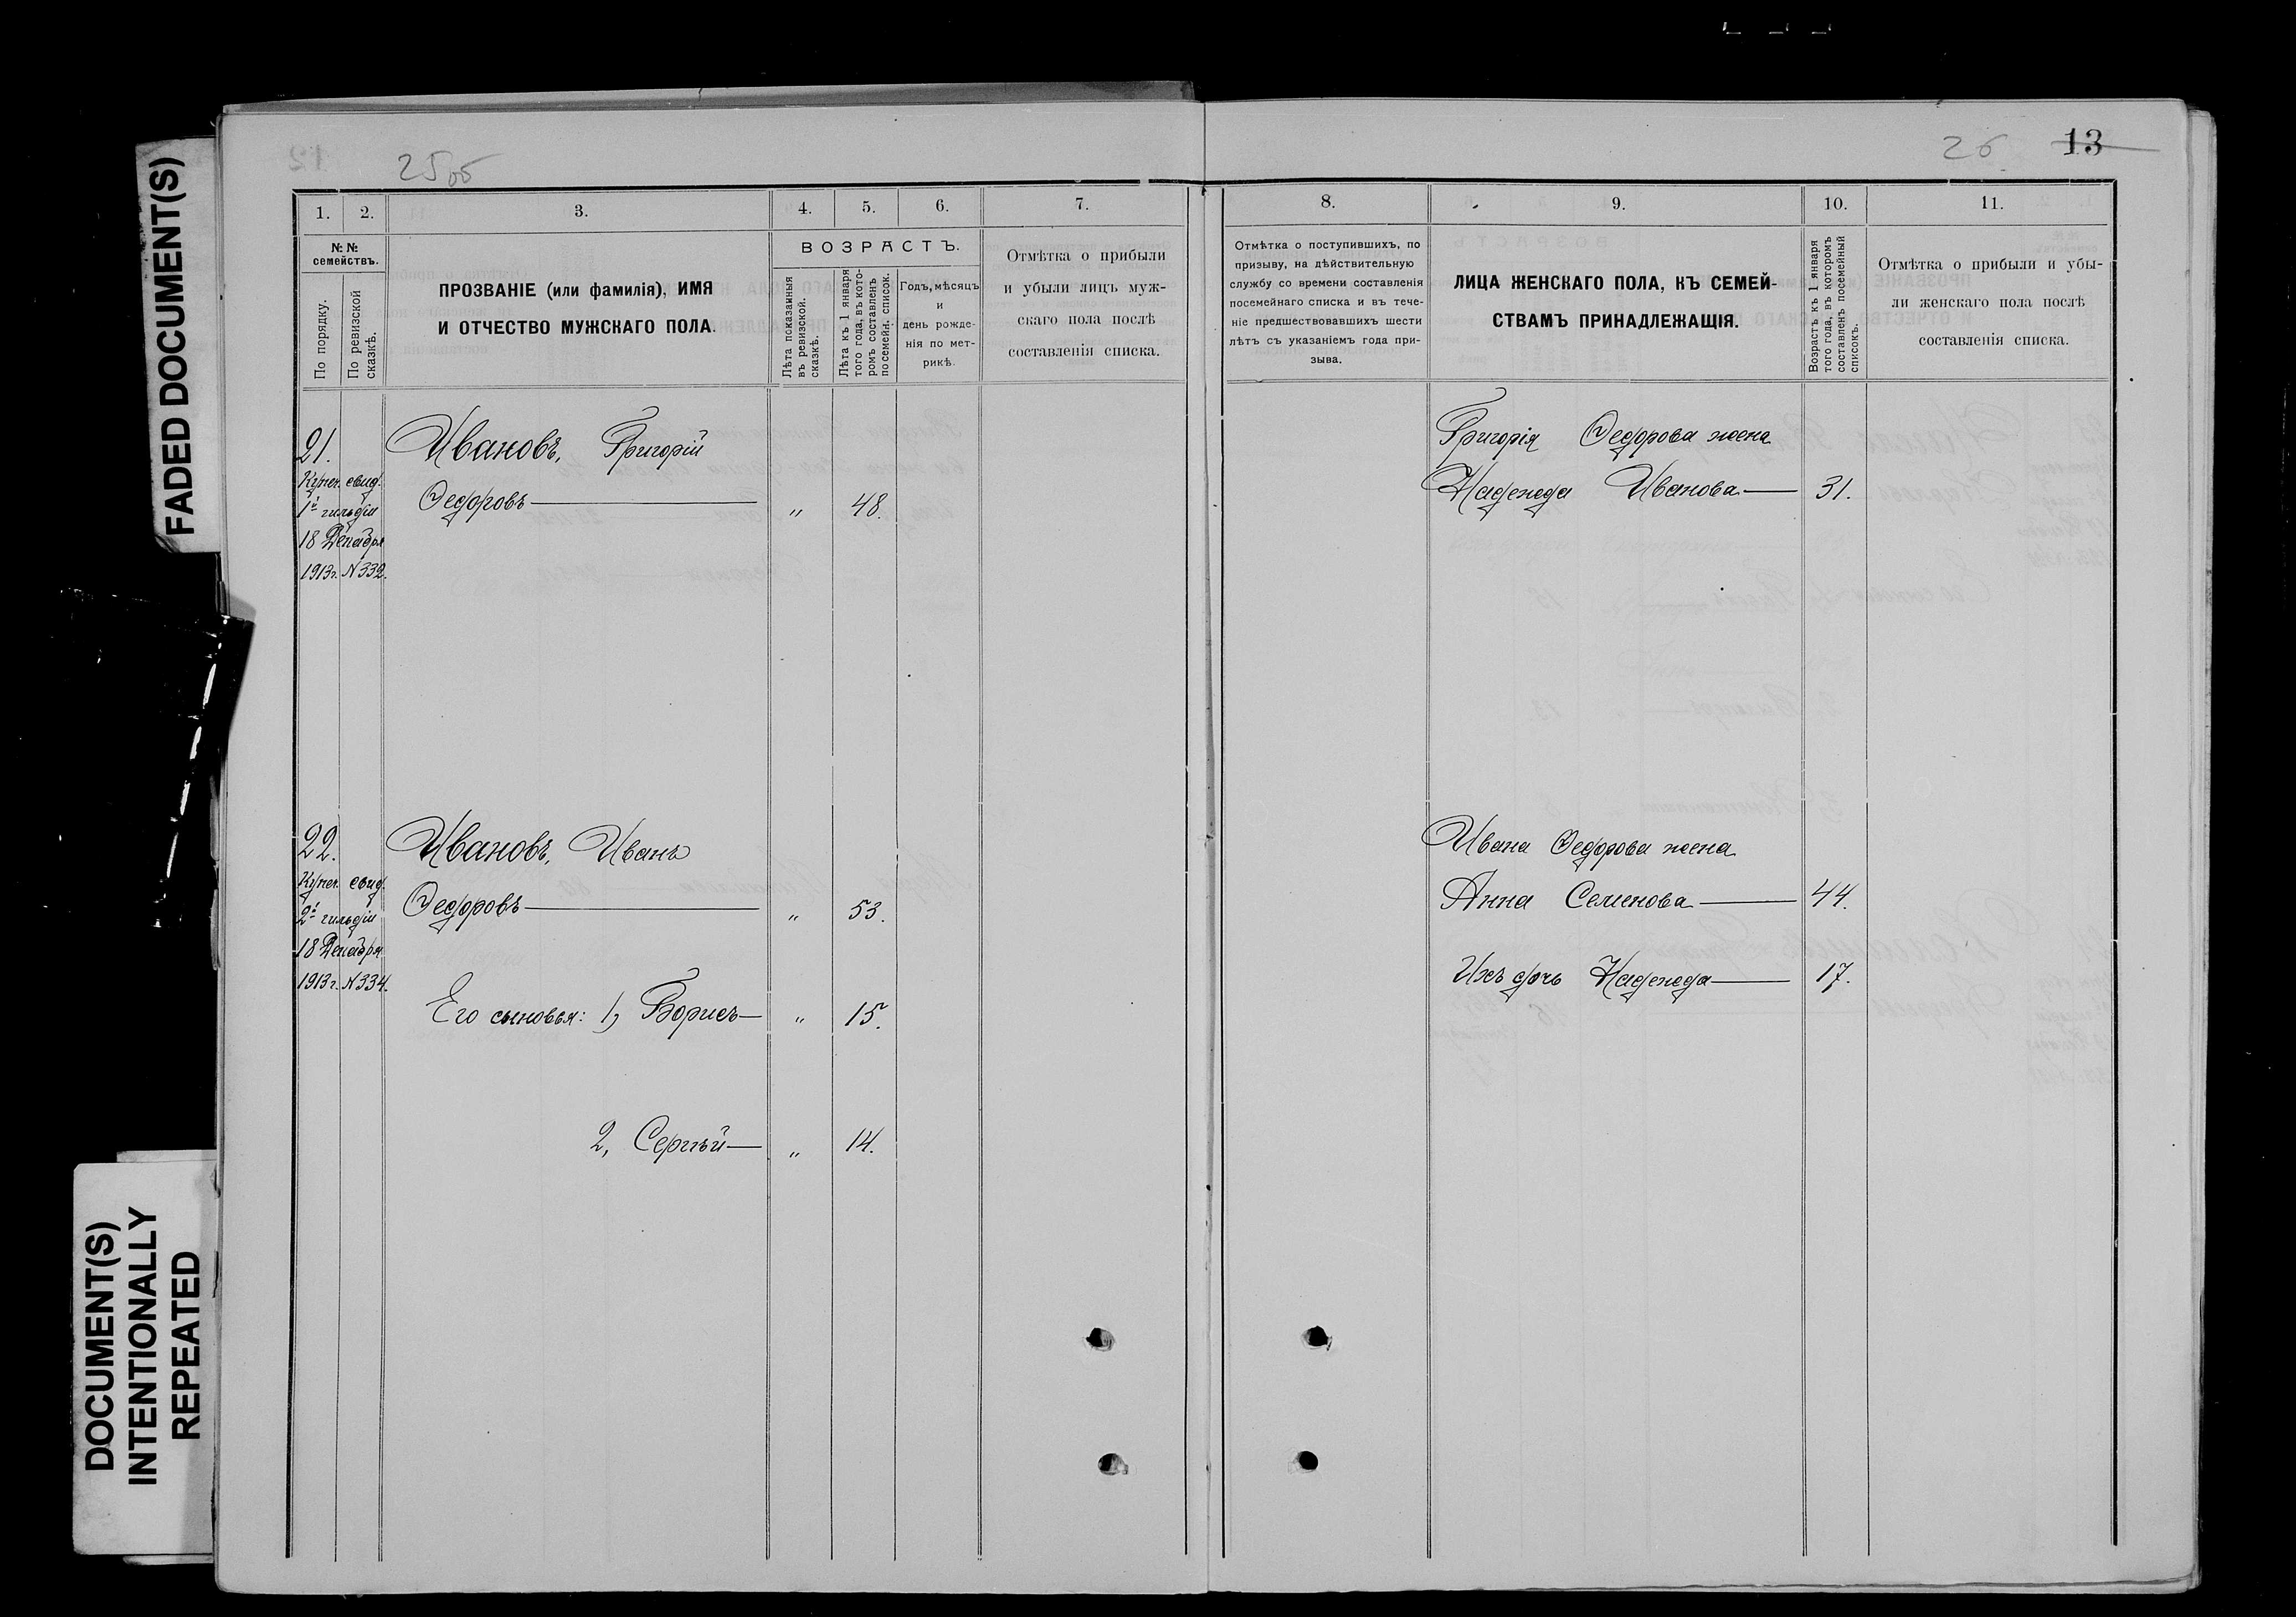 FADED DOCUMENT(S)
DOCUMENT(S)
INTENTIONALLY
REPEATED
25об
1.
2.
3.
4.
5.
6.
7.
№ №
семействъ.
По порядку.
По ревизской
сказкѣ.
ПРОЗВАНІЕ (или фамилія), ИМЯ
И ОТЧЕСТВО МУЖСКАГО ПОЛА.
ВОЗРАСТЪ.
Лѣта показанныя
въ ревизской.
сказкѣ.
Лѣта къ 1 января
того года, въ кото-
ромъ составленъ
посемейн. список.
Годъ, мѣсяцъ
и
день рожде-
нія по мет-
рикѣ.
Отмѣтка о прибыли
и убыли лицъ муж-
скаго пола послѣ
составленія списка.
21.
Купеч. свид.
1й гильдіи
18 Декабря
1913г. N 332.
Ивановъ, Григорій
Ѳедоровъ „ 48.
22.
Купеч. свид.
2й гильдіи
18 Декабря
1913г. N 334.
Ивановъ, Иванъ
Ѳедоровъ „ 53.
Его сыновья: 1, Борисъ „ 15.
2, Сергѣй „ 14.
26 13
8.
9.
10.
11.
Отмѣтка о поступившихъ, по
призыву, на дѣйствительную
службу со времени составленія
посемейнаго списка и въ тече-
ніе предшествовавшихъ шести
лѣтъ съ указаніемъ года при-
зыва.
ЛИЦА ЖЕНСКАГО ПОЛА, КЪ СЕМЕЙ-
СТВАМЪ ПРИНАДЛЕЖАЩІЯ.
Возрастъ къ 1 января
того года, въ которомъ
составленъ посемейный
списокъ.
Отмѣтка о прибыли и убы-
ли женскаго пола послѣ
составленія списка.
Григорія Ѳедорова жена
Надежда Иванова 31.
Ивана Ѳедорова жена
Анна Семенова 44.
Ихъ дочь Надежда 17.